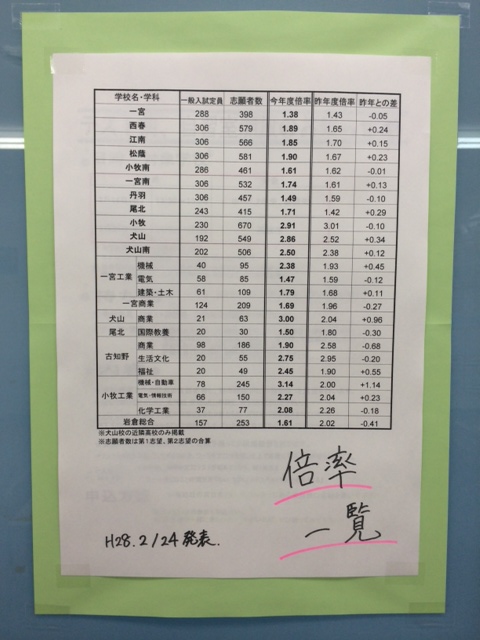 学校名・学科 一般入試定員 志願者数 今年度倍率 昨年度倍率 昨年との差
一宮 288 398 1.38 1.43 -0.05
西春 306 579 1.89 1.65 +0.24
江南 306 566 1.85 1.70 +0.15
松蔭 306 581 1.90 1.67 +0.23
小牧南 286 461 1.61 1.62 -0.01
一宮南 306 532 1.74 1.61 +0.13
丹羽 306 457 1.49 1.59 -0.10
尾北 243 415 1.71 1.42 +0.29
小牧 230 670 2.91 3.01 -0.10
犬山 192 549 2.86 2.52 +0.34
犬山南 202 506 2.50 2.38 +0.12
一宮工業 機械 40 95 2.38 1.93 +0.45
電気 58 85 1.47 1.59 -0.12
建築・土木 61 109 1.79 1.68 +0.11
一宮商業 124 209 1.69 1.96 -0.27
犬山 商業 21 63 3.00 2.04 +0.96
尾北 国際教養 20 30 1.50 1.80 -0.30
古知野 商業 98 186 1.90 2.58 -0.68
生活文化 20 55 2.75 2.95 -0.20
福祉 20 49 2.45 1.90 +0.55
小牧工業 機械・自動車 78 245 3.14 2.00 +1.14
電気・情報技術 66 150 2.27 2.04 +0.23
化学工業 37 77 2.08 2.26 -0.18
岩倉総合 157 253 1.61 2.02 -0.41
※犬山校の近隣高校のみ掲載
※志願者数は第1志望、第2志望の合算
倍率
一覧
H28.2/24発表.